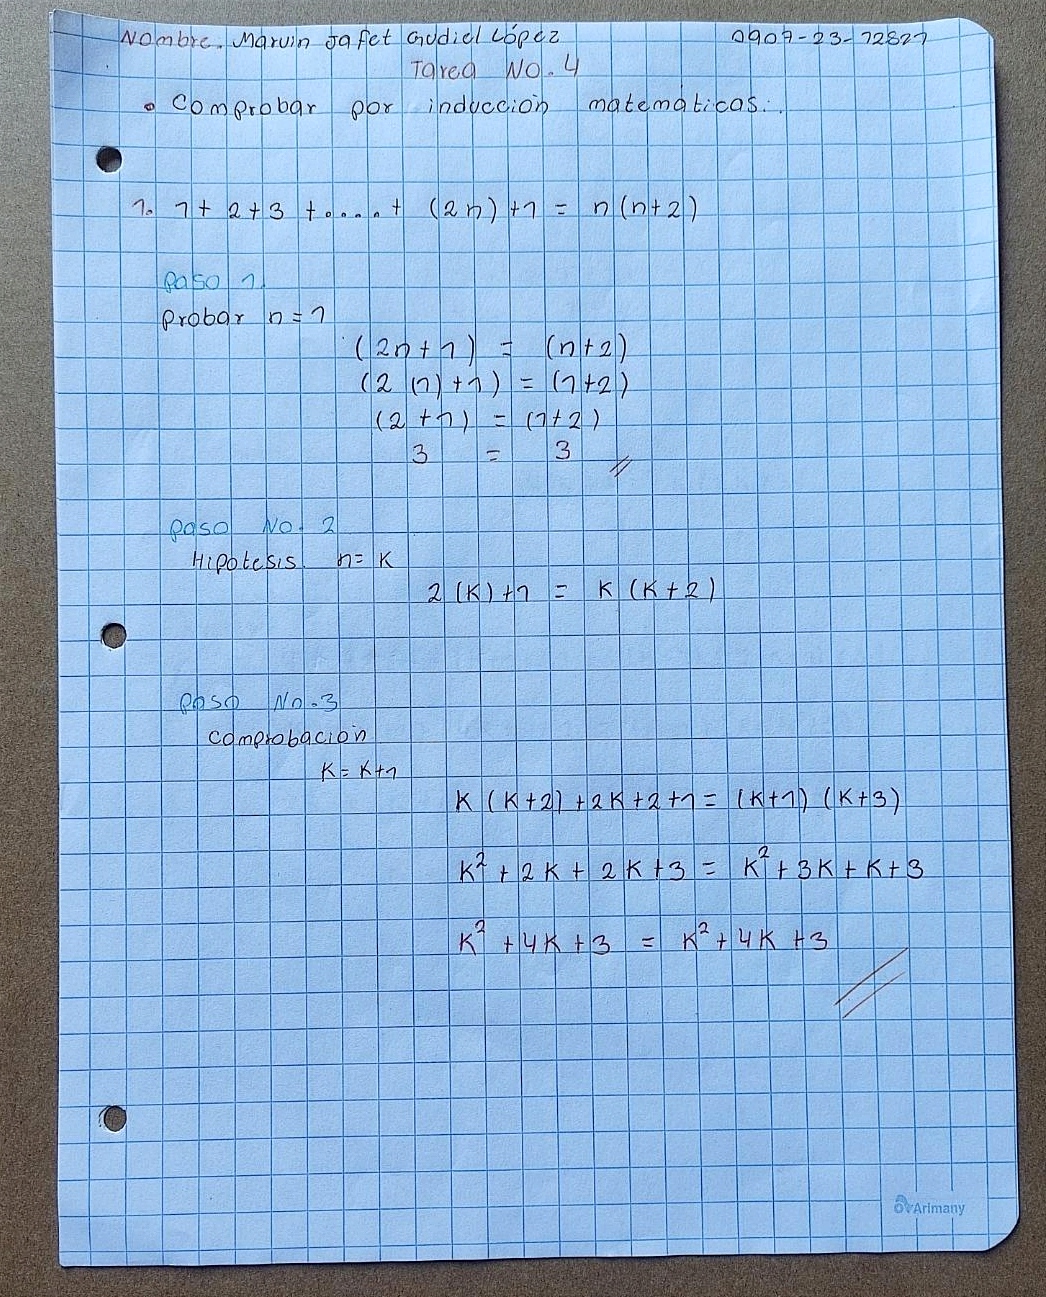 Nombre. Marvin Jafet Gudiel López 0907-23-12827
Tarea No. 4
• Comprobar por inducción matemáticas.
1. 1 + 2 + 3 + ..... + (2n) + 1 = n (n+2)
Paso 1.
Probar n = 1
(2n + 1) = (n+2)
(2 (1) + 1) = (1+2)
(2 + 1) = (1+2)
3 = 3 //
Paso No. 2
Hipotesis n = K
2 (K) + 1 = K (K + 2)
Paso No. 3
Comprobación
K = K+1
K (K+2) + 2K + 2 + 1 = (K+1) (K+3)
K² + 2K + 2K + 3 = K² + 3K + K + 3
K² + 4K + 3 = K² + 4K + 3
Arimany